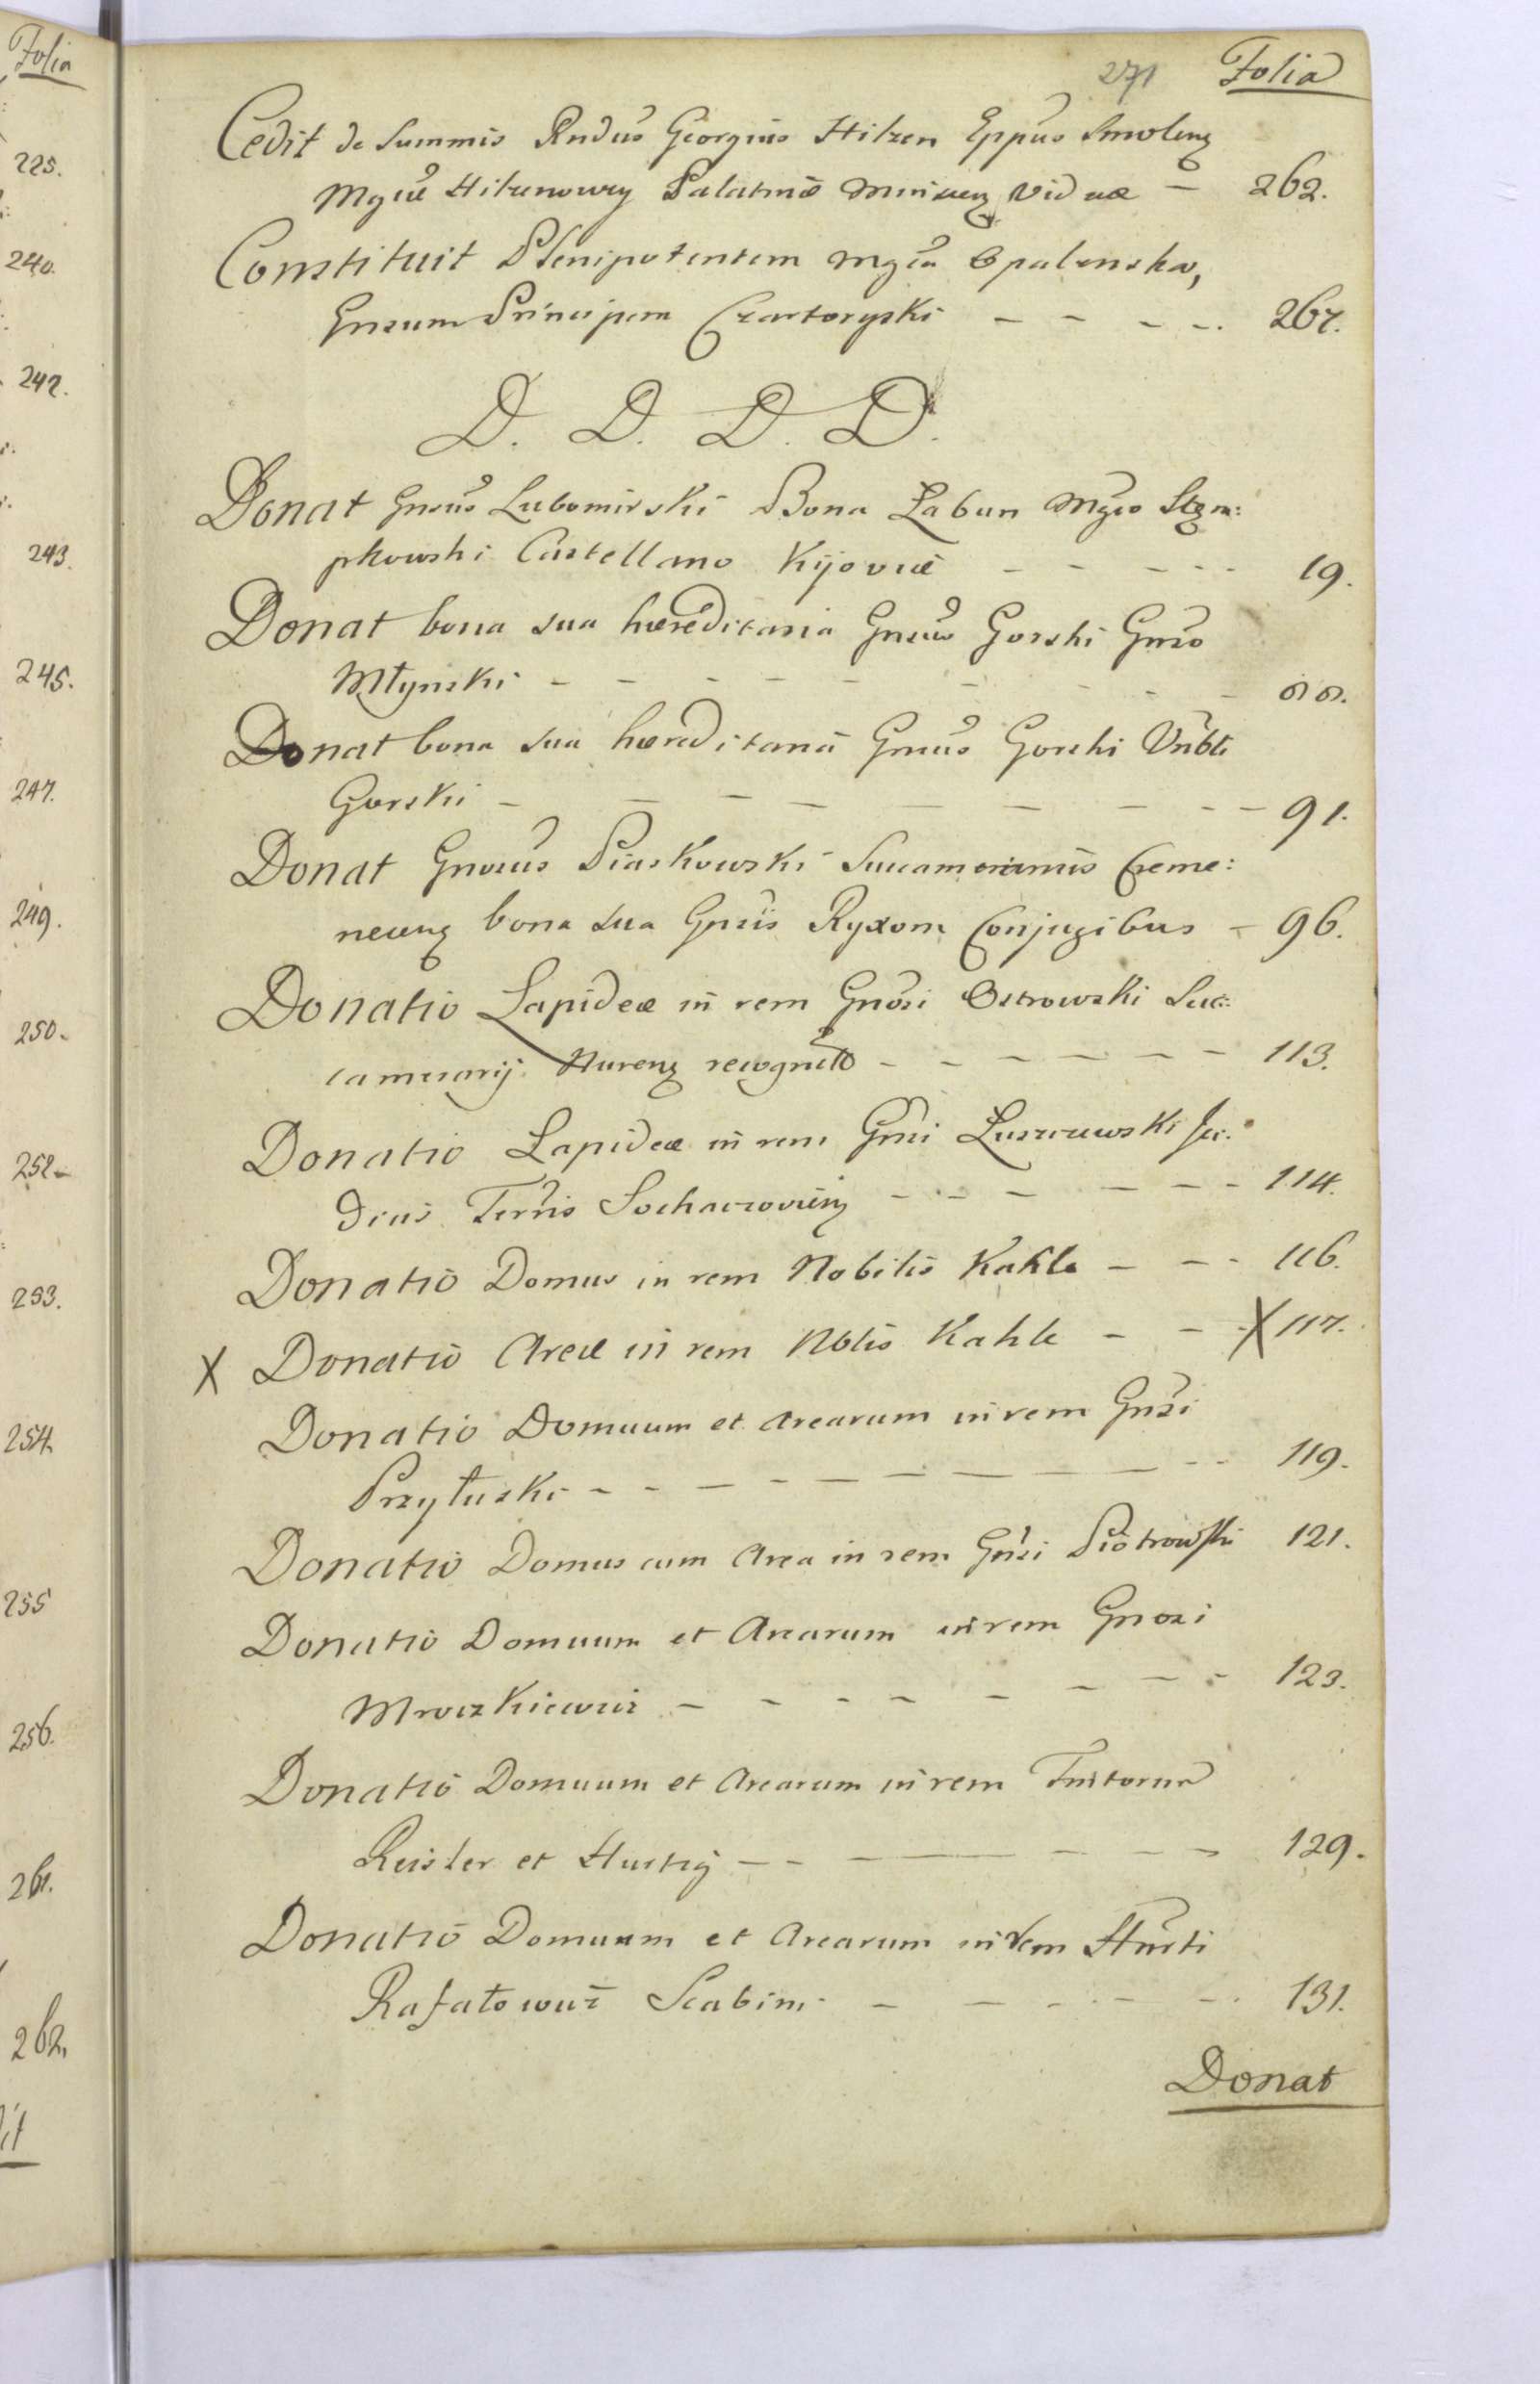 Folia
225.
240.
242.
243.
245.
247.
249.
250.
252.
253.
254.
255
256.
261.
262.
271 Folia
Cedit de Summis Rndus Georgius Hilzen Eppus Smolenę
Mgcæ Hilzenowey Palatinæ Minscenę Viduæ – 262.
Constituit Plenipotentem Mgca Opalenska,
Gnsum Principem Czartoryski – – – – 267.
D. D. D. D.
Donat Gnsus Lubomirski Bona Łabun Mgco Stęm:
pkowski Castellano Kijoviæ – – – – – 19.
Donat bona sua hæreditaria Gnsus Gorski Gnso
Młynski – – – – – – – – – – 88.
Donat bona sua hæreditaria Gnsus Gorski Vribli
Gorski – – – – – – – – – 91.
Donat Gnosus Piaskowski Succamerarius Creme:
necenę bona sua Gnsis Ryxom Conjugibus – 96.
Donatio Lapideæ in rem Gnosi Ostrowski Suc:
camerarij Nurenę recognita – – – – – – 113.
Donatio Lapideæ in rem Gnsi Luszczewski Ju:
dicis Terris Sochaczovienę – – – – – – 114.
Donatio Domus in rem Nobilis Kahle – – – 116.
X Donatio Areæ in rem Nblis Kahle – – X 117.
Donatio Domuum et Arearum in rem Gnsi
Przyłuski – – – – – – – – – – 119.
Donatio Domus cum Area in rem Gnsi Piotrowski 121.
Donatio Domuum et Arearum in rem Gnosi
Mroczkiewicz – – – – – – – – 123.
Donatio Domuum et Arearum in rem
Reisler et Hurtig – – – – – – – 129.
Donatio Domuum et Arearum in rem
Rafałowicz Scabini – – – – – – 131.
Donat